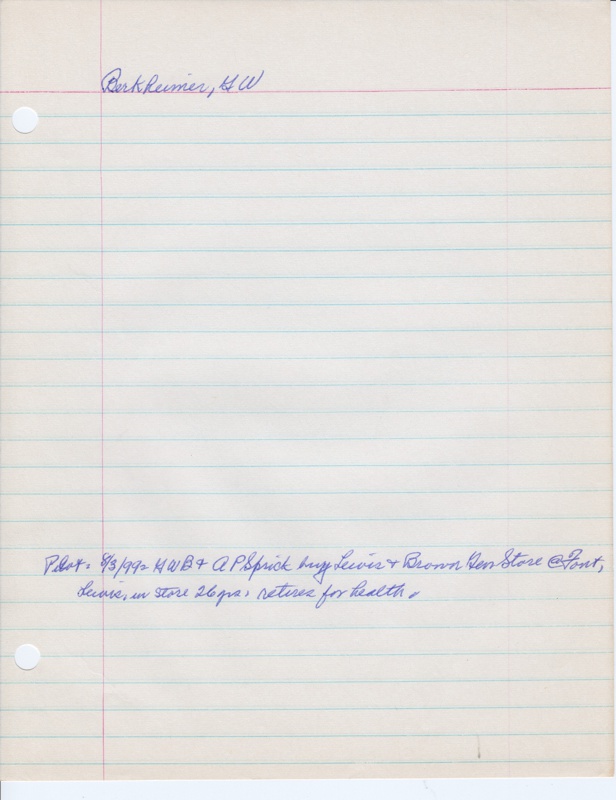 Berkheimer, G W
Pilot = 8/3/99= G W B + A P Sprick buy Lewis + Brown Gen Store @ Font,
Lewis, in store 26 yrs, retires for health.